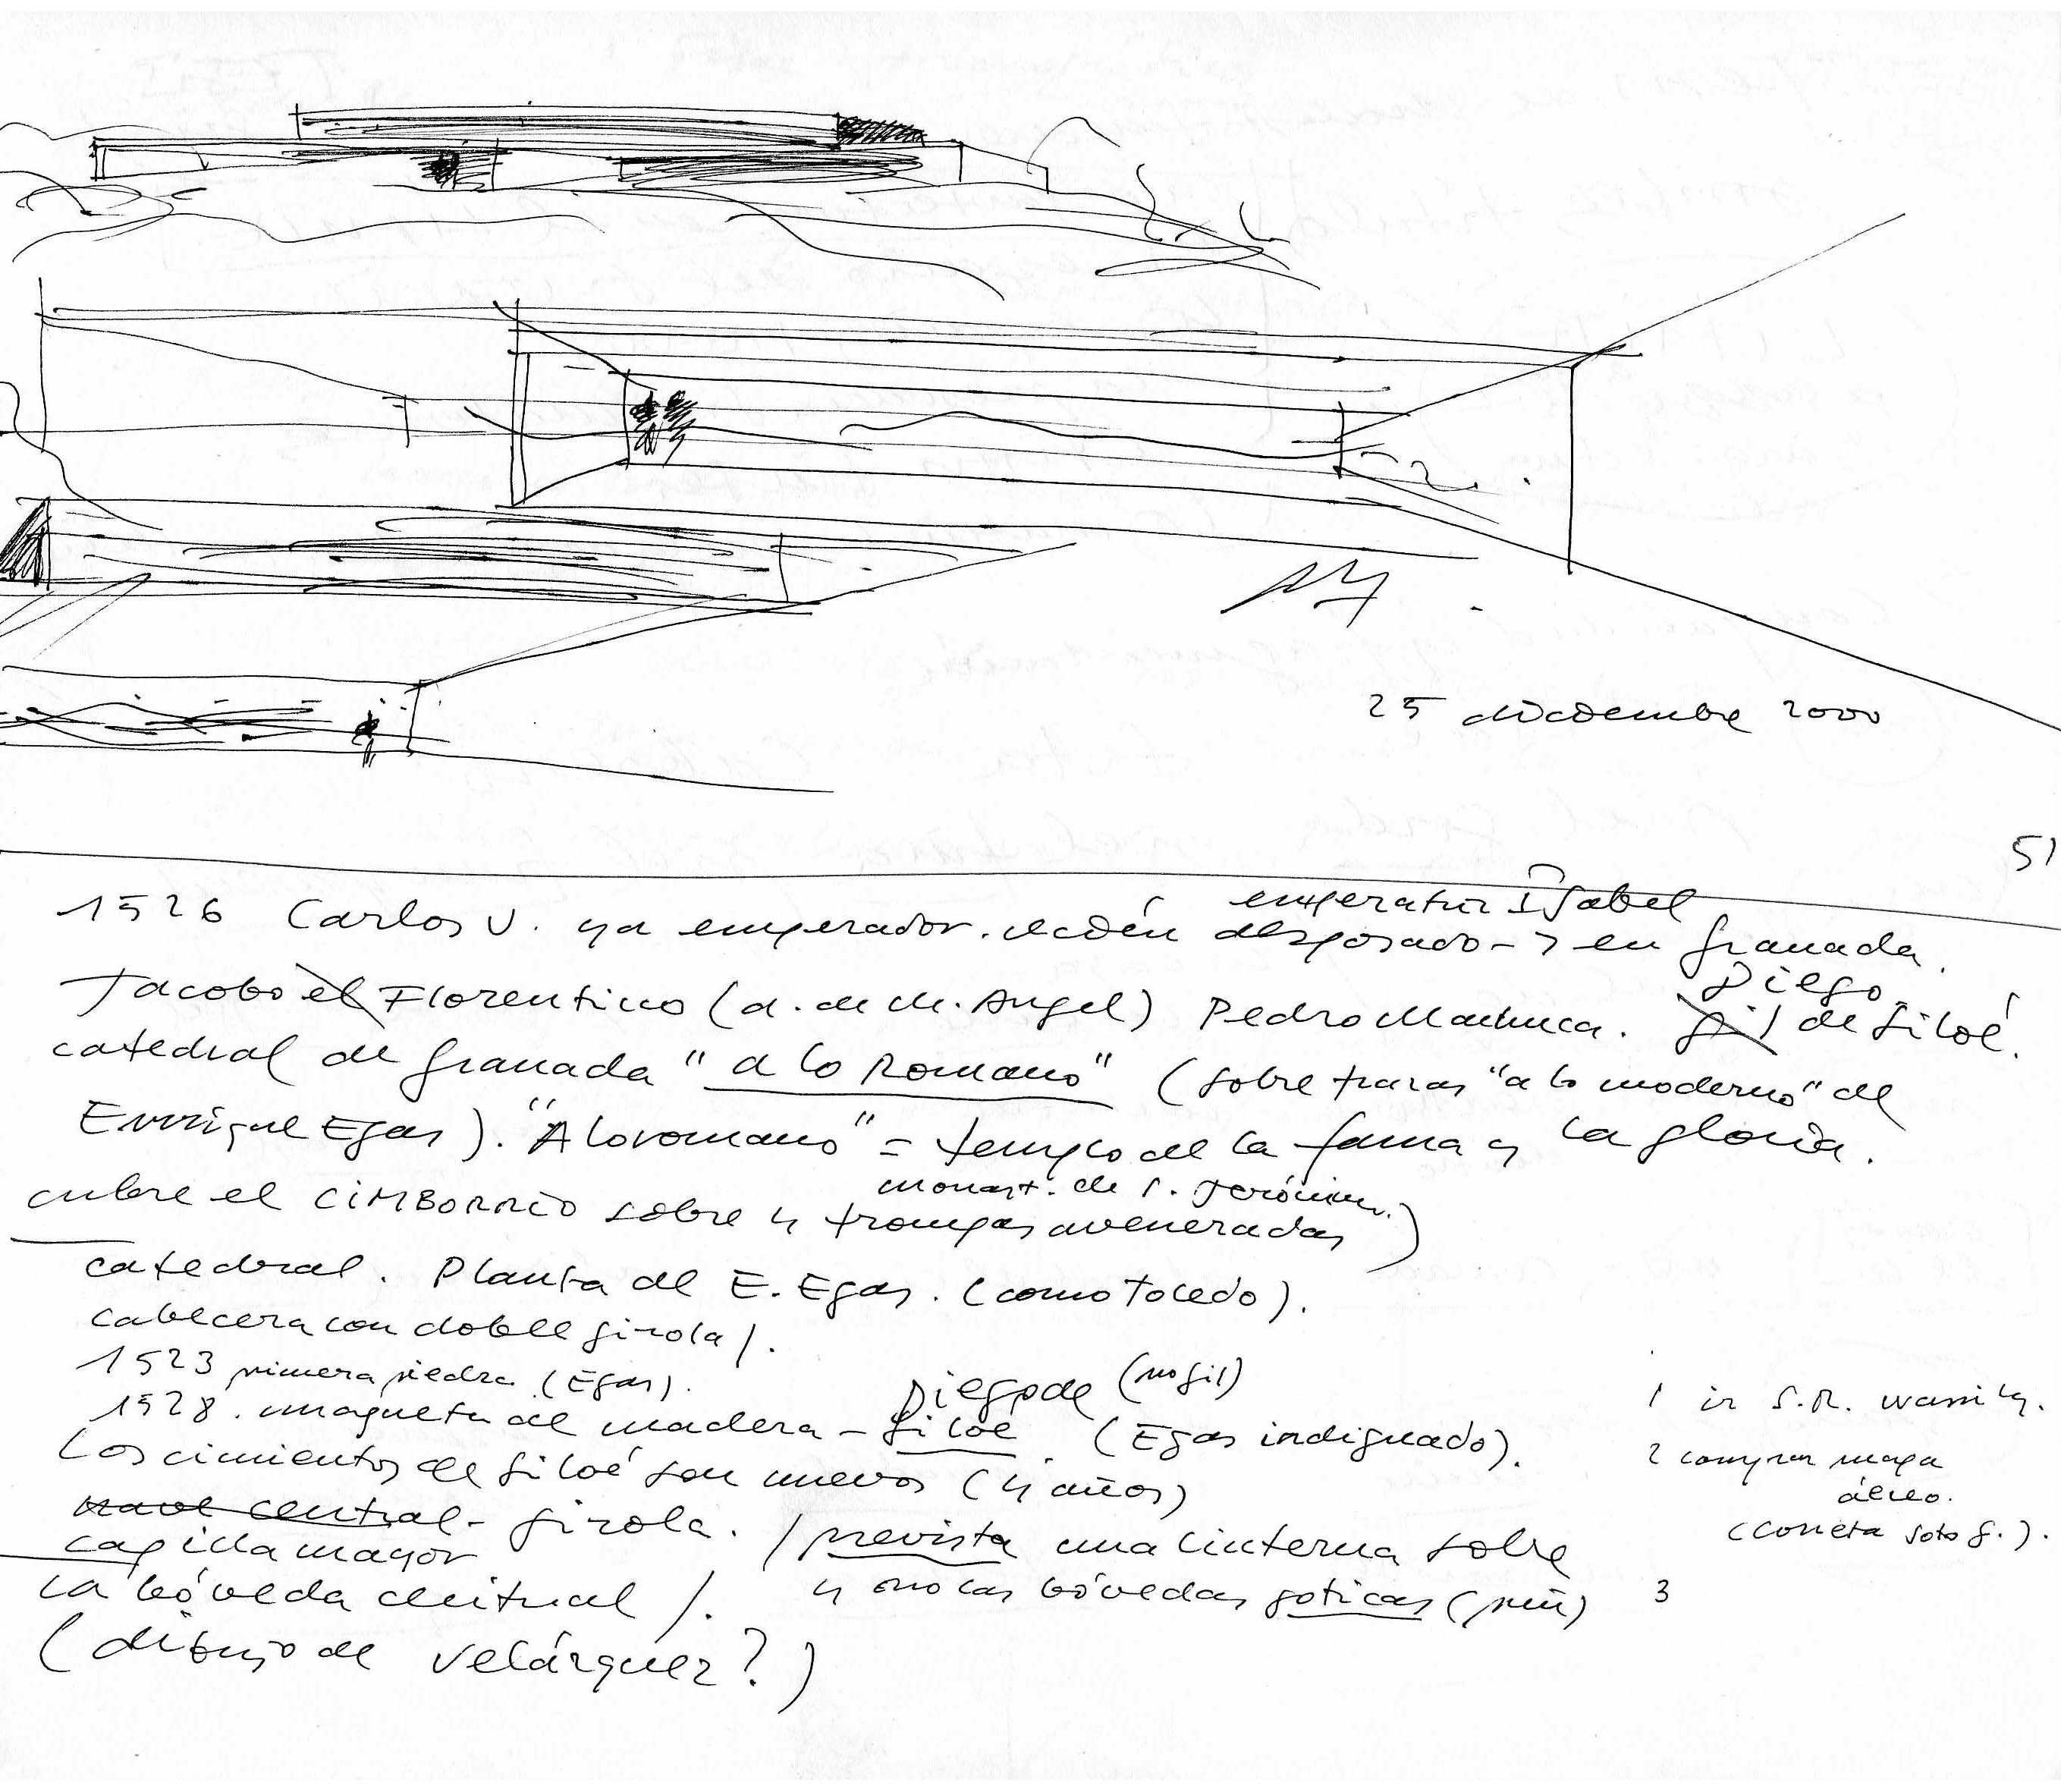 25 diciembre 2000
51
emperatriz Isabel
1526 Carlos V. ya emperador. recién desposado -> en Granada.
Diego
Jacobo el Florentino (a. de M. Angel) Pedro Machuca. Gil de Siloé.
catedral de Granada "a lo Romano" (sobre trazas "a lo moderno" de
Enrrique Egas). "A lo romano" = templo de la fama y la gloria.
monast. de S. Jerónimo.
cubre el CIMBORRIO sobre 4 trompas aveneradas)
catedral. Planta de E. Egas. (como Toledo).
cabecera con doble girola/.
1523 primera piedra (Egas).
Diego de (no Gil)
1528. maqueta de madera - Siloé (Egas indignado).
Los cimientos de Siloé son nuevos (4 años)
nave central - girola.
capilla mayor
/prevista una linterna sobre
la bóveda central /.
y no las bóvedas goticas
(dibujo de Velázquez?)
1 ir S.R.
2 comprar mapa
aéreo.
(Soto G.).
3